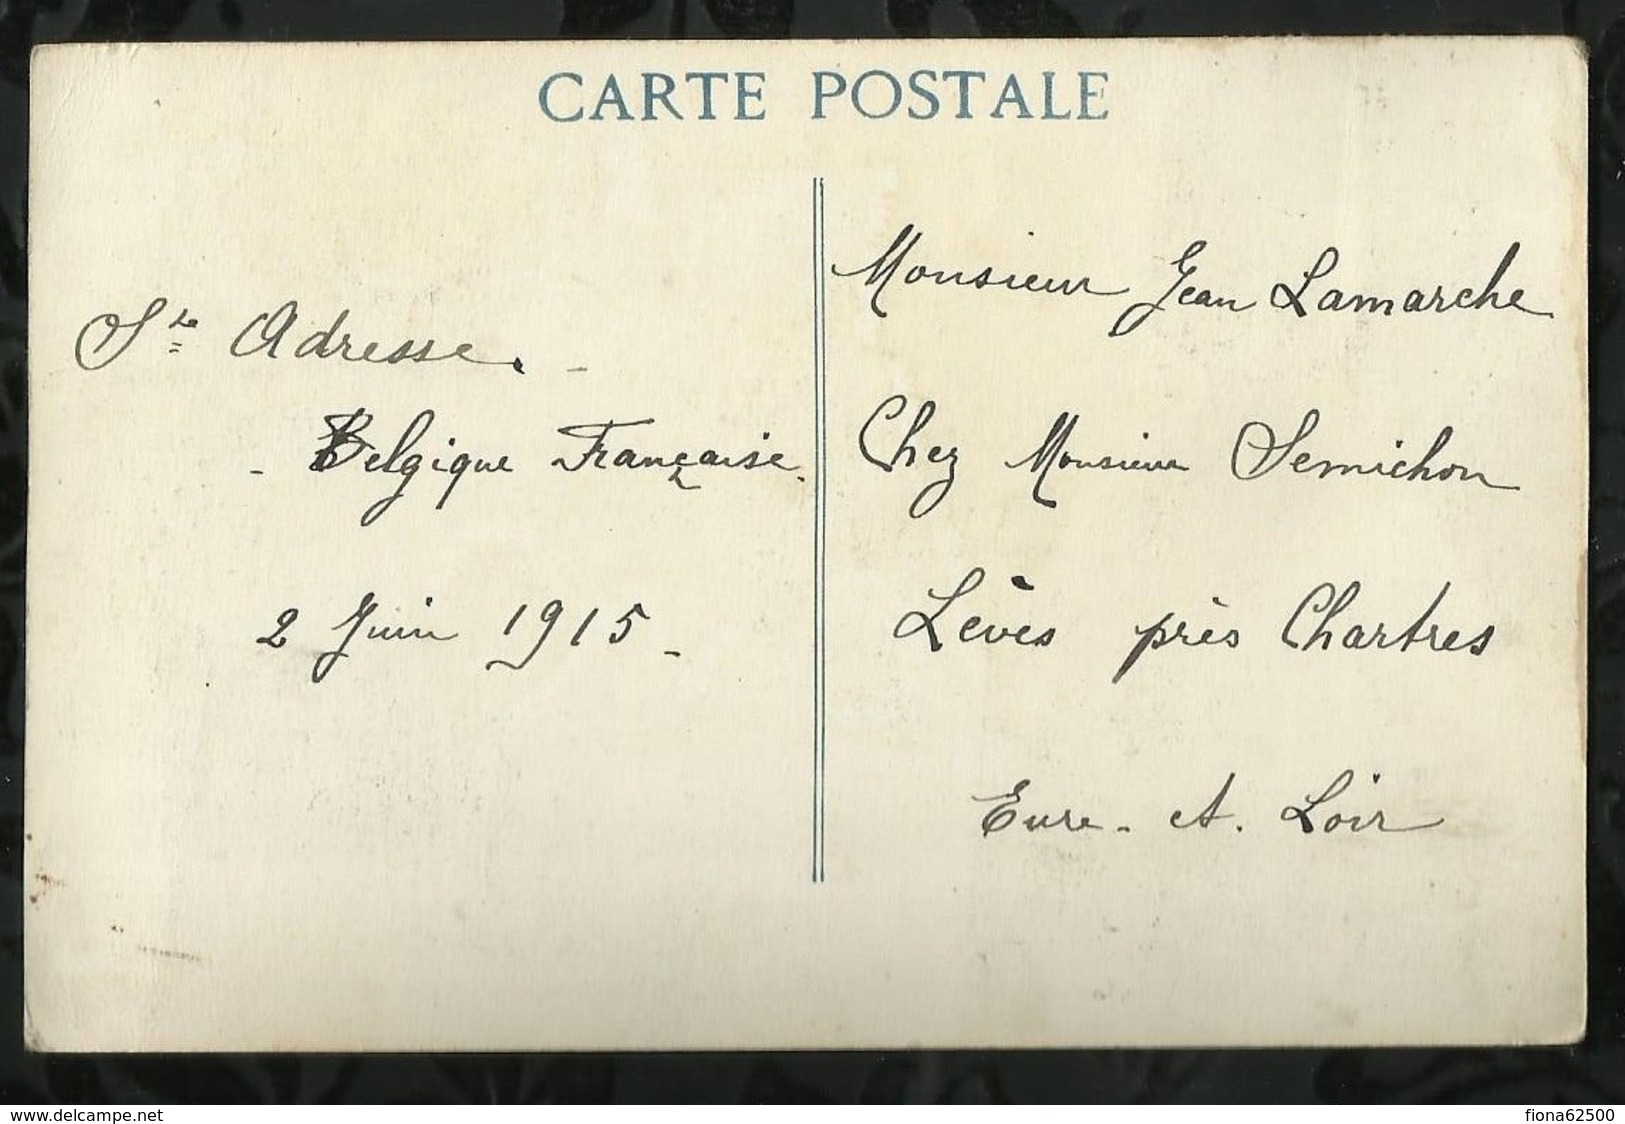 CARTE POSTALE
Ste Adresse. -
- Belgique Française.
2 Juin 1915 -
Monsieur Jean Lamarche
Chez Monsieur Semichon
Lèves près Chartres
Eure - et. Loir
www.delcampe.net
fiona62500